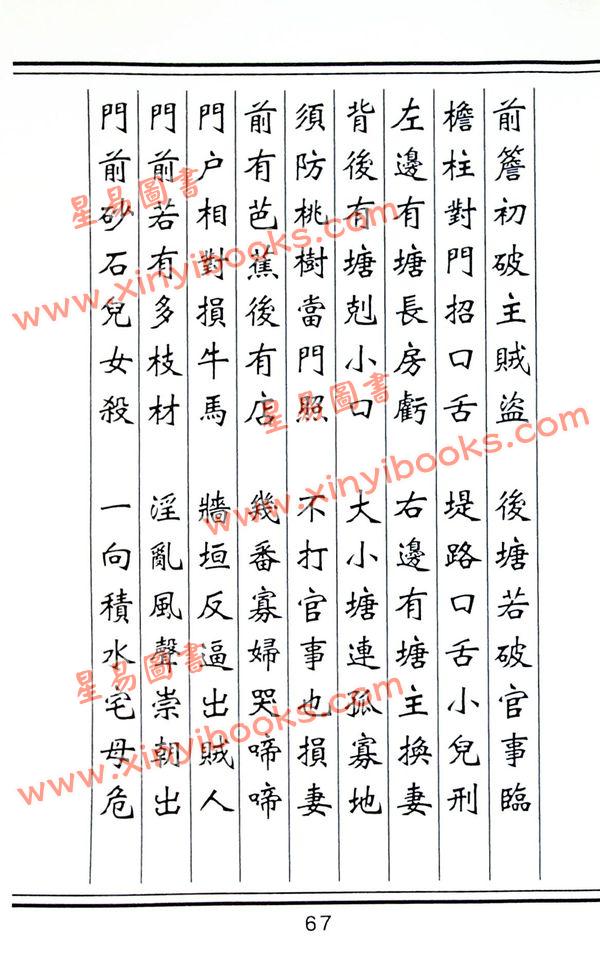 前簷初破主賊盜 後塘若破官事臨
檐柱對門招口舌 堤路口舌小兒刑
左邊有塘長房虧 右邊有塘主換妻
背後有塘剋小口 大小塘連孤寡地
須防桃樹當門照 不打官事也損妻
前有芭蕉後有店 幾番寡婦哭啼啼
門户相對損牛馬 牆垣反逼出賊人
門前若有多枝材 淫亂風聲崇朝出
門前砂石兒女殺 一向積水宅母危
67
星易圖書
www.xinyibooks.com
星易圖書
www.xinyibooks.com
星易圖書
www.xinyibooks.com